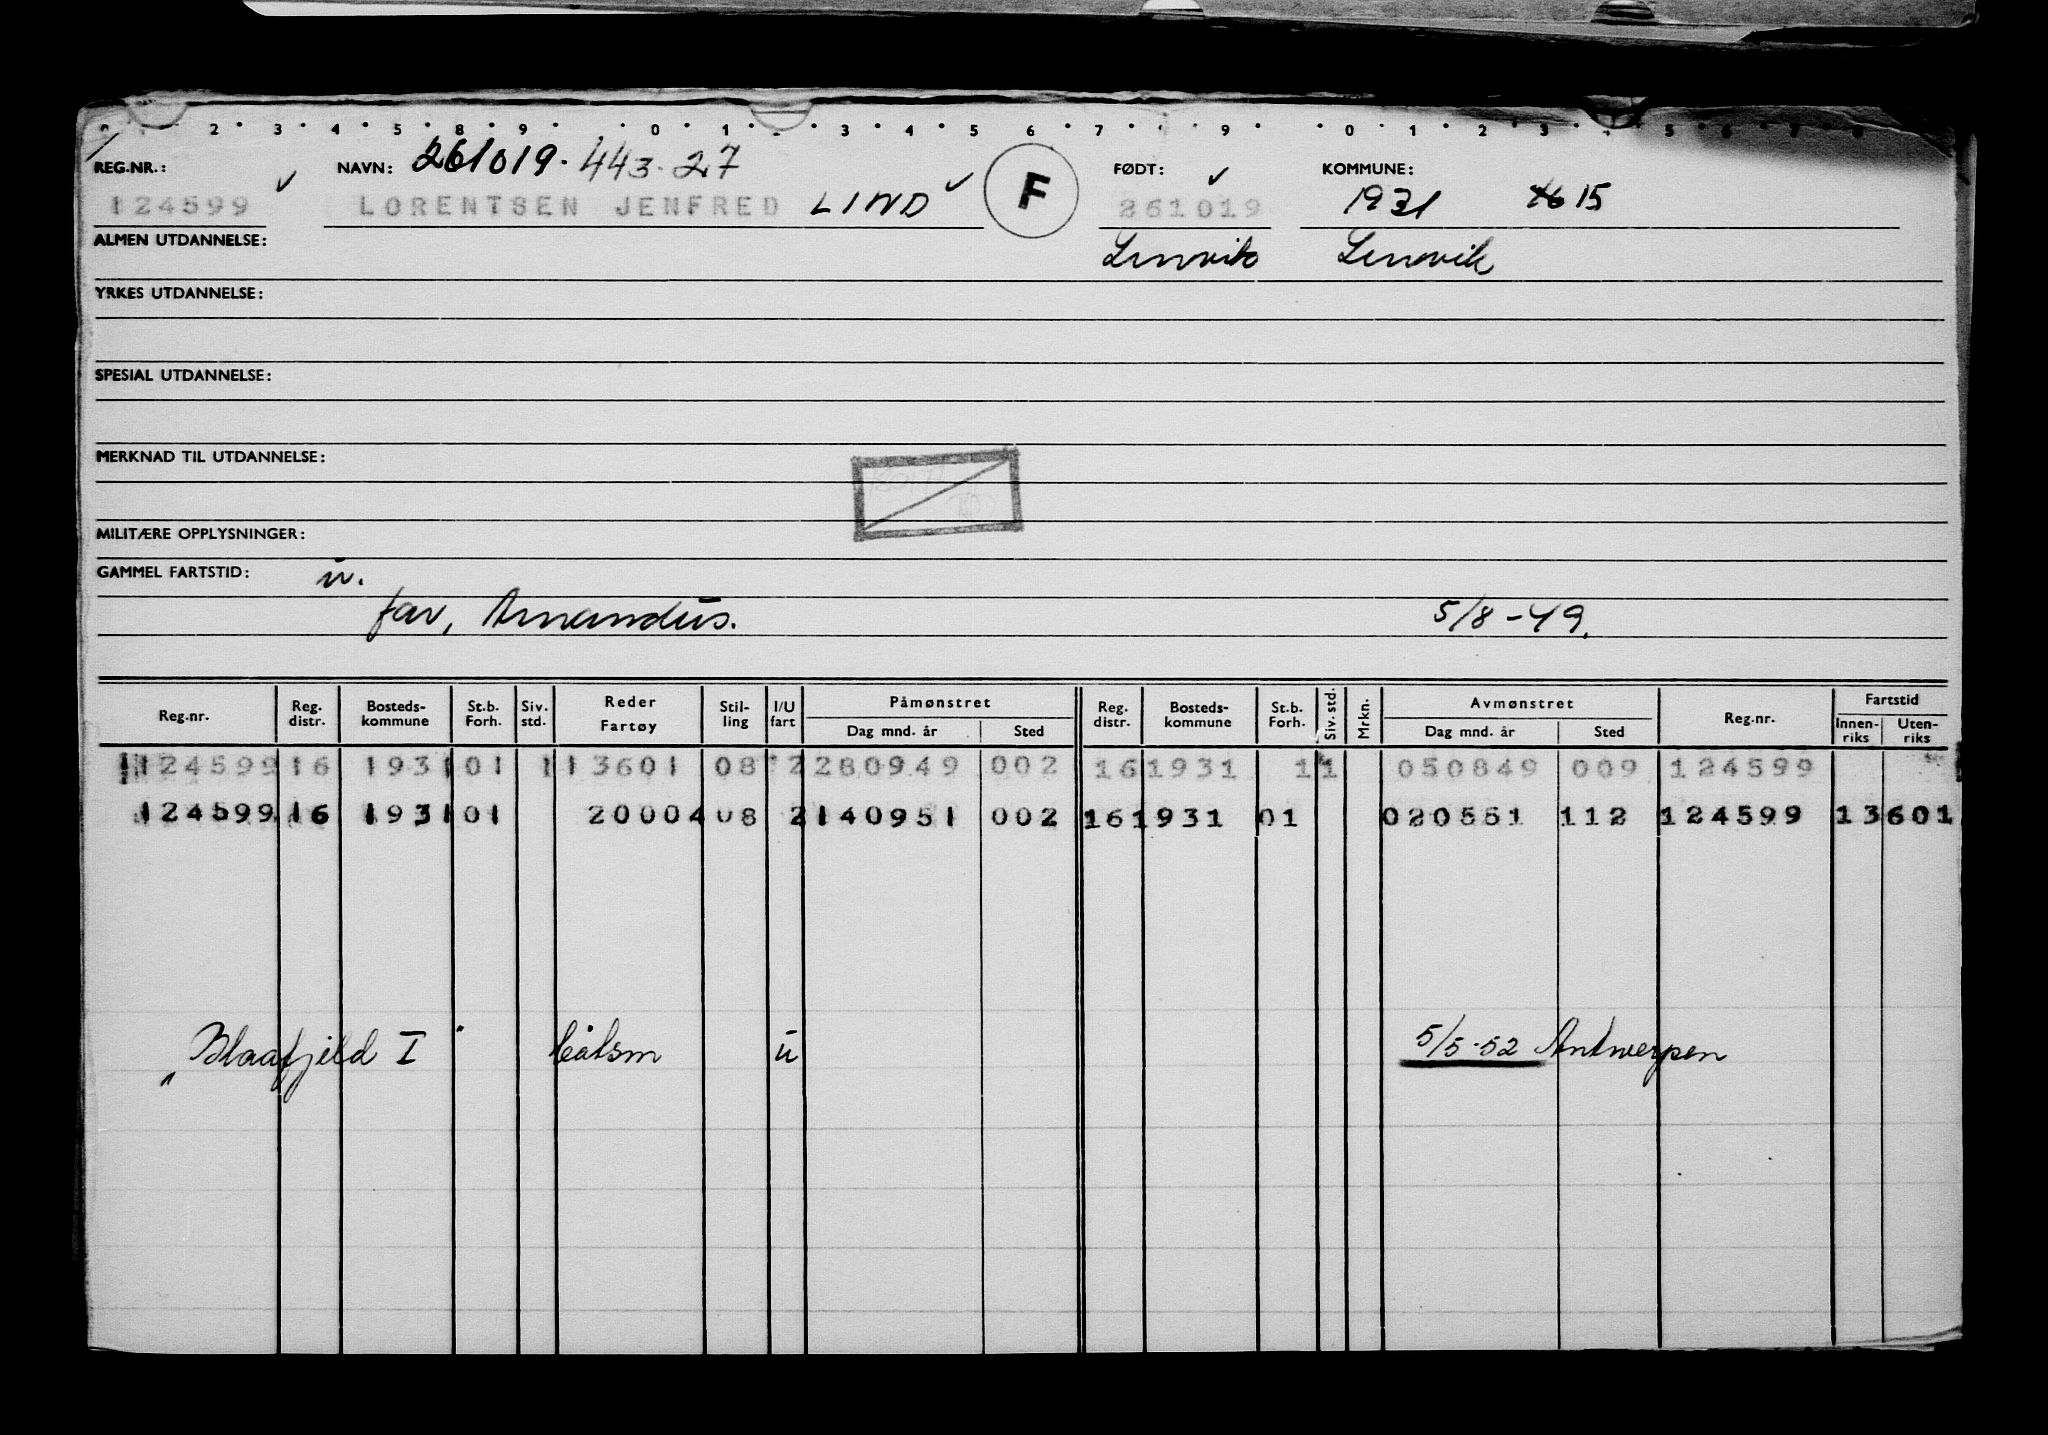 2 3 4 5 8 9 0 1 3 4 5 6 7 9 0 1 2 3 5
REG.NR.: NAVN: 261019. 443.27 F FØDT: KOMMUNE:
124599 LORENTSEN JENFRED LIND 261019 1931 15
ALMEN UTDANNELSE: Lenvik Lenvik
YRKES UTDANNELSE:
SPESIAL UTDANNELSE:
MERKNAD TIL UTDANNELSE:
MILITÆRE OPPLYSNINGER:
GAMMEL FARTSTID: u.
far, Amandus. 5/8-49.
Reg.nr. Reg. distr. Bosteds-kommune St.b. Forh. Siv. std. Reder Fartøy Stil-ling I/U fart Påmønstret Dag mnd. år Sted Reg. distr. Bosteds-kommune St.b. Forh. Siv. std. Mrkn. Avmønstret Dag mnd. år Sted Reg.nr. Fartstid Innen-riks Uten-riks
124599 16 1931 01 1 13601 08 2 280949 002 16 1931 1 1 050849 009 124599
124599 16 1931 01 20004 08 2 140951 002 16 1931 01 020551 112 124599 13601
„Blaafjeld I" båtsm u 5/5-52 Antwerpen